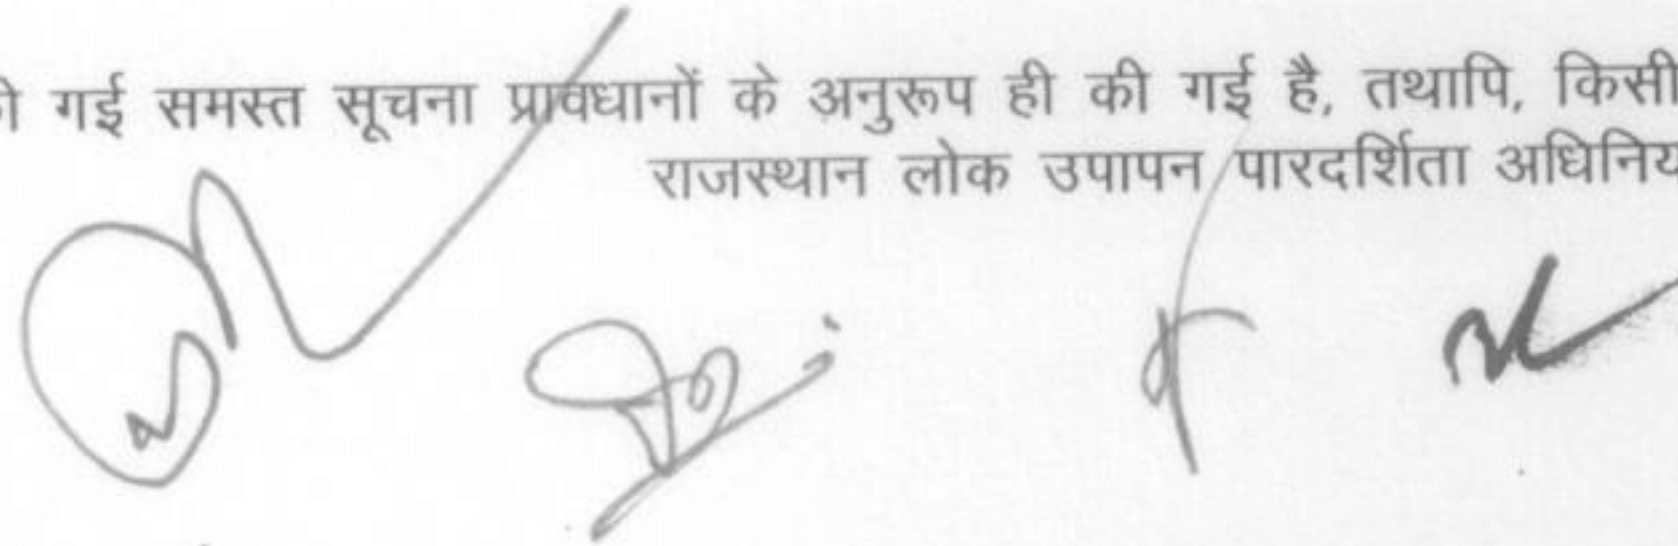 गई समस्त सूचना प्रावधानों के अनुरूप ही की गई है, तथापि, किसी
राजस्थान लोक उपापन पारदर्शिता अधिनिय